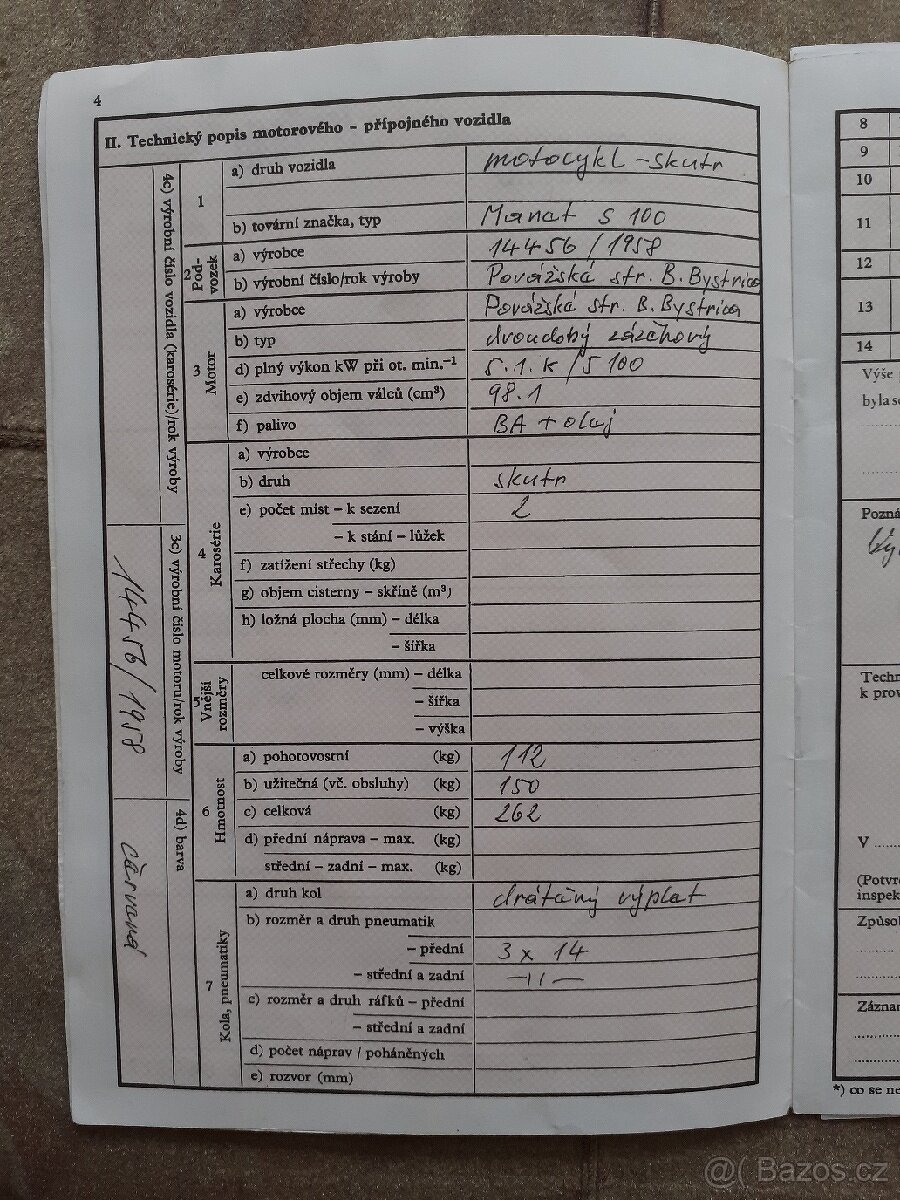 4
II. Technický popis motorového – přípojného vozidla
4c) výrobní číslo vozidla (karosérie)/rok výroby
3c) výrobní číslo motoru/rok výroby
14456/1958
4d) barva
červená
1
a) druh vozidla motocykl – skutr
b) tovární značka, typ Manat S 100
2 Pod-
vozek
a) výrobce 14456/1958
b) výrobní číslo/rok výroby Považská str. B. Bystrica
3 Motor
a) výrobce Považská str. B. Bystrica
b) typ dvoudobý zážehový
d) plný výkon kW při ot. min.⁻¹ 5.1.k/5100
e) zdvihový objem válců (cm³) 98.1
f) palivo BA + olej
4 Karosérie
a) výrobce
b) druh skutr
e) počet míst – k sezení 2
– k stání – lůžek
f) zatížení střechy (kg)
g) objem cisterny – skříně (m³)
h) ložná plocha (mm) – délka
– šířka
5 Vnější
rozměry
celkové rozměry (mm) – délka
– šířka
– výška
6 Hmotnost
a) pohotovostní (kg) 112
b) užitečná (vč. obsluhy) (kg) 150
c) celková (kg) 262
d) přední náprava – max. (kg)
střední – zadní – max. (kg)
7 Kola, pneumatiky
a) druh kol drátěný výplet
b) rozměr a druh pneumatik
– přední 3 x 14
– střední a zadní –11–
c) rozměr a druh ráfků – přední
– střední a zadní
d) počet náprav / poháněných
e) rozvor (mm)
8
9
10
11
12
13
14
Výše
byla se
Pozná
Techn
k prov
V
(Potvr
inspek
Způsol
Záznar
*) co se ne
@( Bazos.cz